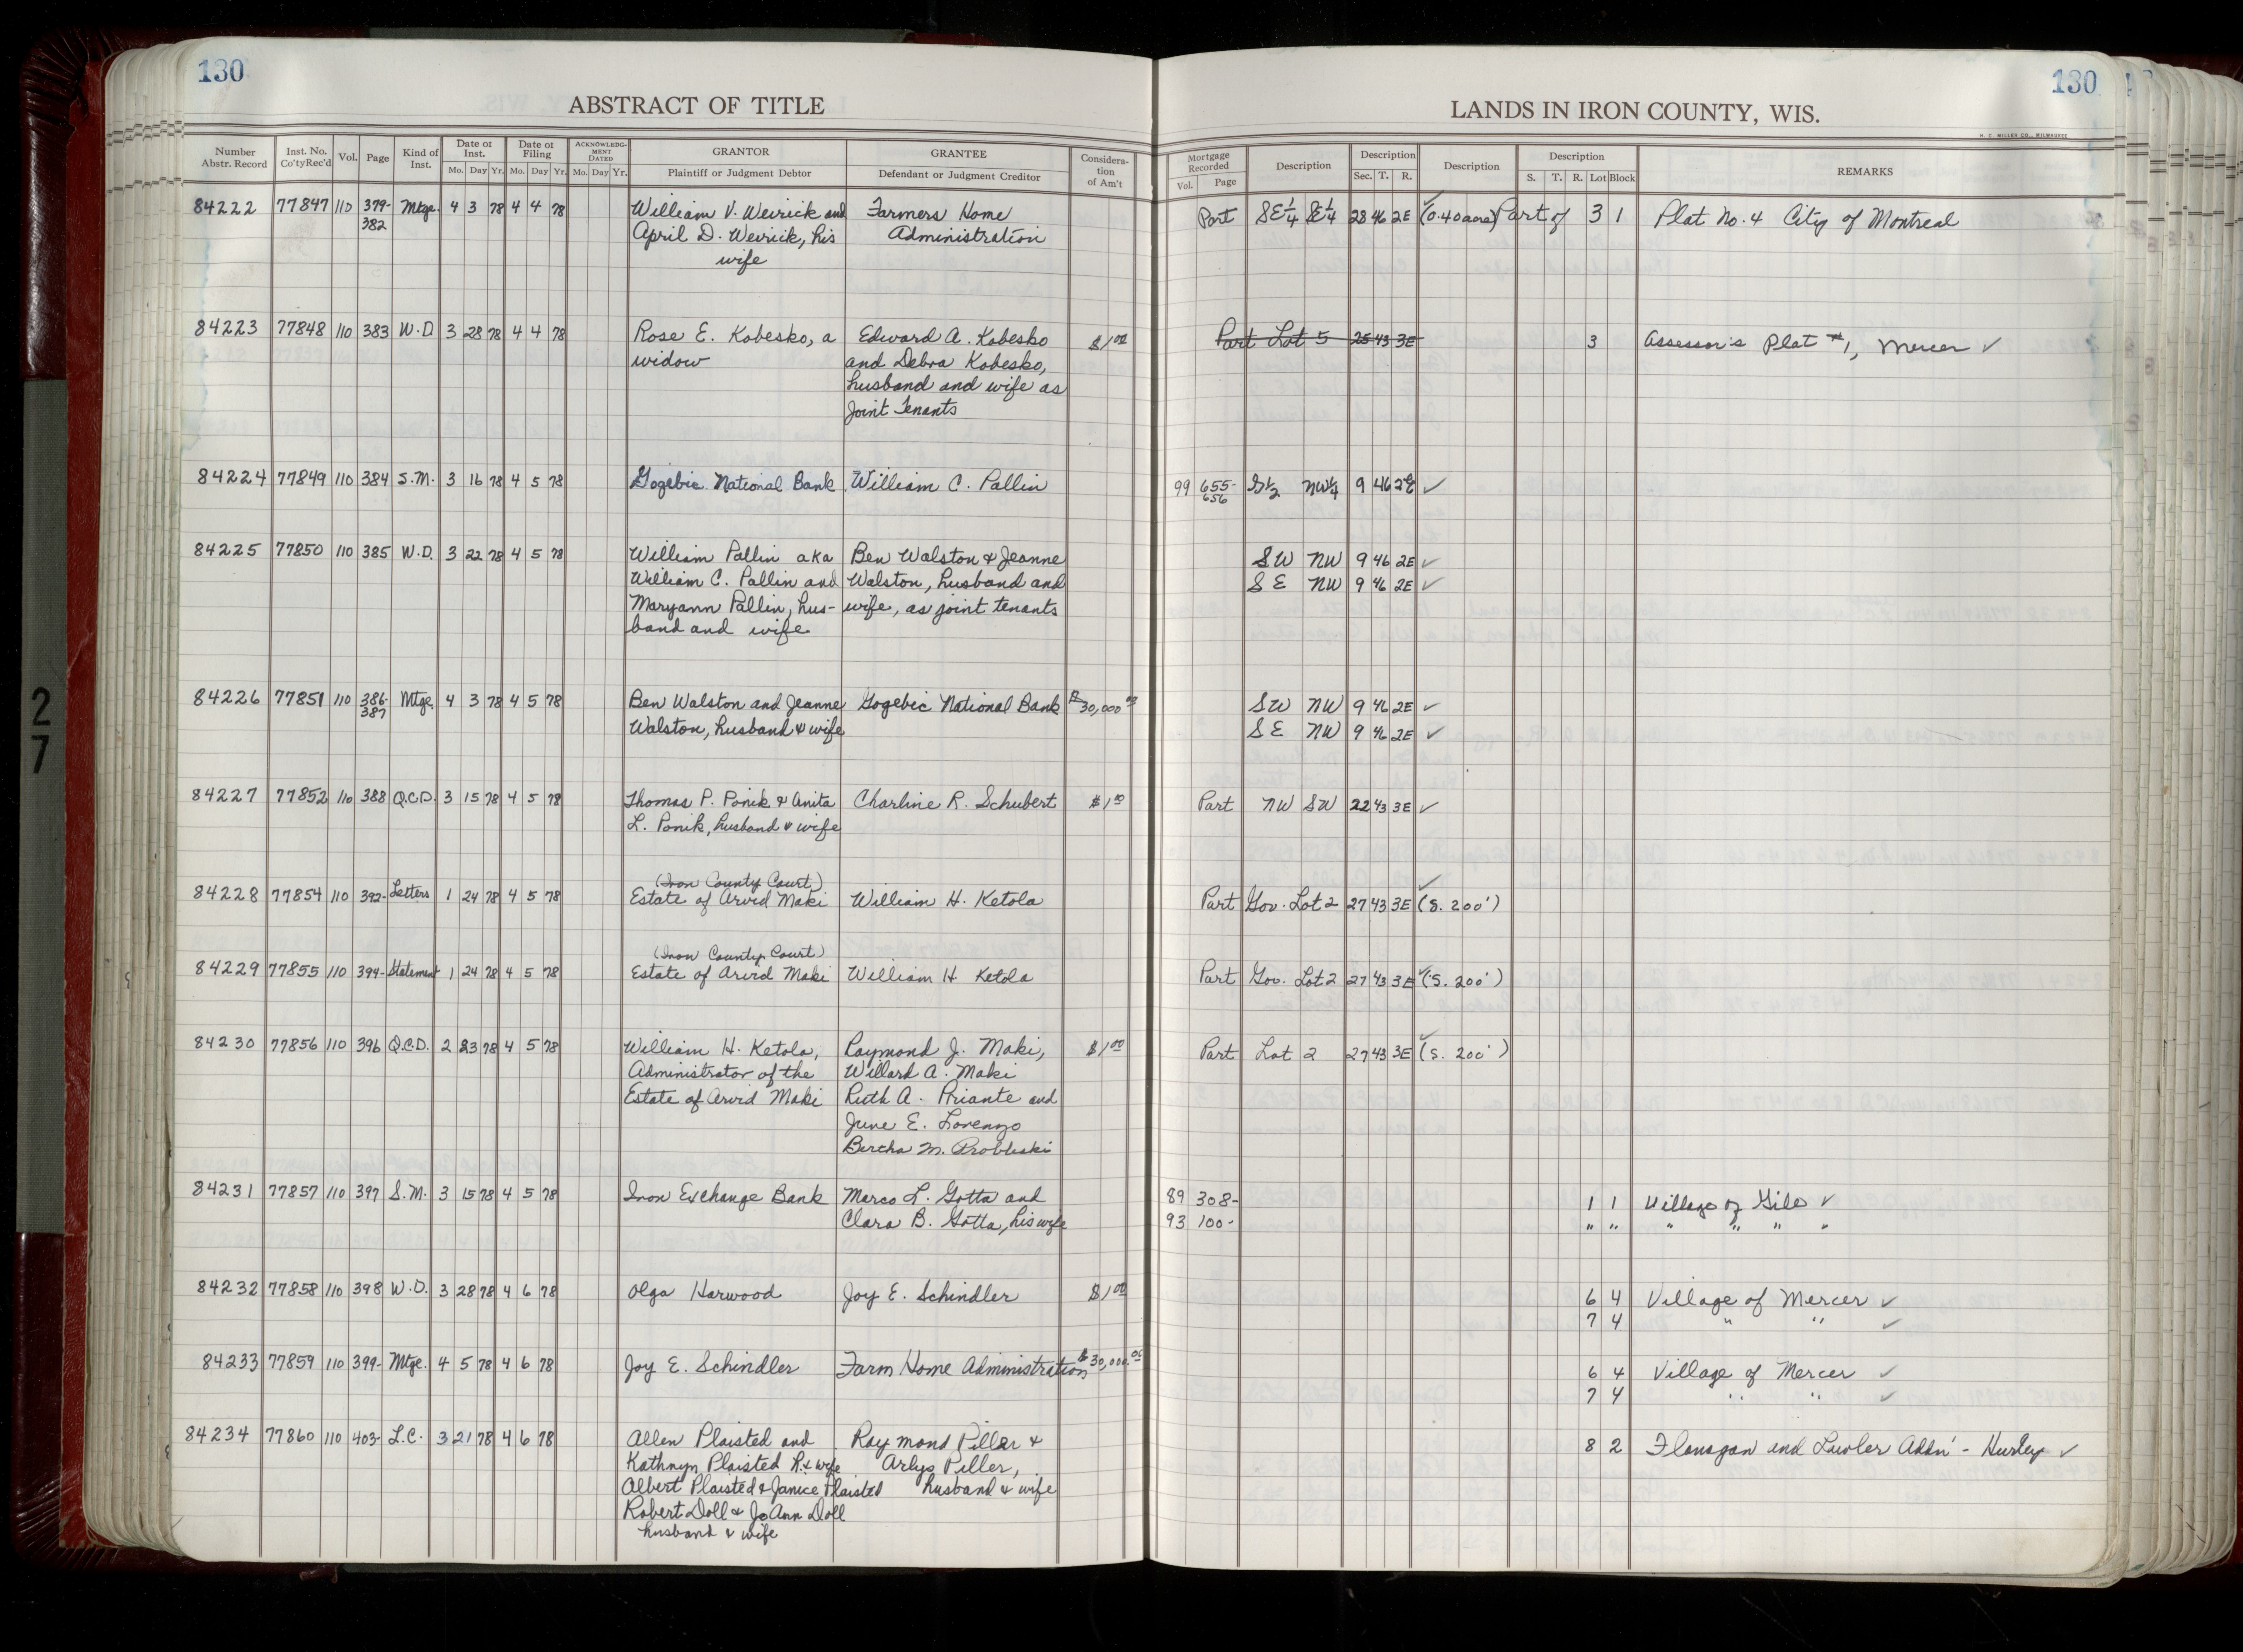 130
130
ABSTRACT OF TITLE
LANDS IN IRON COUNTY, WIS.
H. C. MILLER CO., MILWAUKEE
Number Abstr. Record Inst. No. Co'tyRec'd Vol. Page Kind of Inst. Date of Inst. Mo. Day Yr. Date of Filing Mo. Day Yr. ACKNOWLEDGMENT DATED Mo. Day Yr. GRANTOR Plaintiff or Judgment Debtor GRANTEE Defendant or Judgment Creditor Consideration of Am't
Mortgage Recorded Vol. Page Description Description Sec. T. R. Description Description S. T. R. Lot Block REMARKS
84222 77847 110 379- Mtge. 4 3 78 4 4 78 William V. Weirick and Farmers Home Part SE¼ SE¼ 28 46 2E ✓ (0.40 acres) Part of 3 1 Plat No. 4 City of Montreal
382 April D. Weirick, his Administration
wife
84223 77848 110 383 W.D 3 28 78 4 4 78 Rose E. Kobesko, a Edward A. Kobesko $1.00 Part Lot 5 25 43 3E 3 Assessor's Plat #1, Mercer ✓
widow and Debra Kobesko,
husband and wife as
Joint Tenants
84224 77849 110 384 S.M. 3 16 78 4 5 78 Gogebic National Bank William C. Pallin 99 655- S½ NW¼ 9 46 2E ✓
656
84225 77850 110 385 W.D. 3 22 78 4 5 78 William Pallin aka Ben Walston & Jeanne SW NW 9 46 2E ✓
William C. Pallin and Walston, husband and SE NW 9 46 2E ✓
Maryann Pallin, hus- wife, as joint tenants
band and wife.
84226 77851 110 386- Mtge. 4 3 78 4 5 78 Ben Walston and Jeanne Gogebic National Bank $30,000.00 SW NW 9 46 2E ✓
387 Walston, husband & wife SE NW 9 46 2E ✓
84227 77852 110 388 Q.C.D. 3 15 78 4 5 78 Thomas P. Ponik & Anita Charline R. Schubert $1.00 Part NW SW 22 43 3E ✓
L. Ponik, husband & wife
(Iron County Court)
84228 77854 110 392- Letters 1 24 78 4 5 78 Estate of Arvid Maki William H. Ketola Part Gov. Lot 2 27 43 3E ✓ (S. 200')
(Iron County Court)
84229 77855 110 394- Statement 1 24 78 4 5 78 Estate of Arvid Maki William H Ketola Part Gov. Lot 2 27 43 3E ✓ (S. 200')
84230 77856 110 396 Q.C.D. 2 23 78 4 5 78 William H. Ketola, Raymond J. Maki, $1.00 Part Lot 2 27 43 3E ✓ (S. 200')
Administrator of the Willard A. Maki
Estate of Arvid Maki Ruth A. Priante and
June E. Lorenzo
Bertha M.
84231 77857 110 397 S.M. 3 15 78 4 5 78 Iron Exchange Bank Marco L. Gotta and 89 308- 1 1 Village of Gile ✓
Clara B. Gotta, his wife 93 100- " " " " " "
84232 77858 110 398 W.D. 3 28 78 4 6 78 Olga Harwood Joy E. Schindler $1.00 6 4 Village of Mercer ✓
7 4 " " ✓
84233 77859 110 399- Mtge. 4 5 78 4 6 78 Joy E. Schindler Farm Home Administration $30,000.00 6 4 Village of Mercer ✓
7 4 " " ✓
84234 77860 110 403- L.C. 3 21 78 4 6 78 Allen Plaisted and Raymond Piller & 8 2 Flanagan and Lawler Addn' - Hurley ✓
Kathryn Plaisted h. & wife Arlys Piller,
Albert Plaisted & Janice Plaisted husband & wife
Robert Doll & JoAnn Doll
husband & wife
27